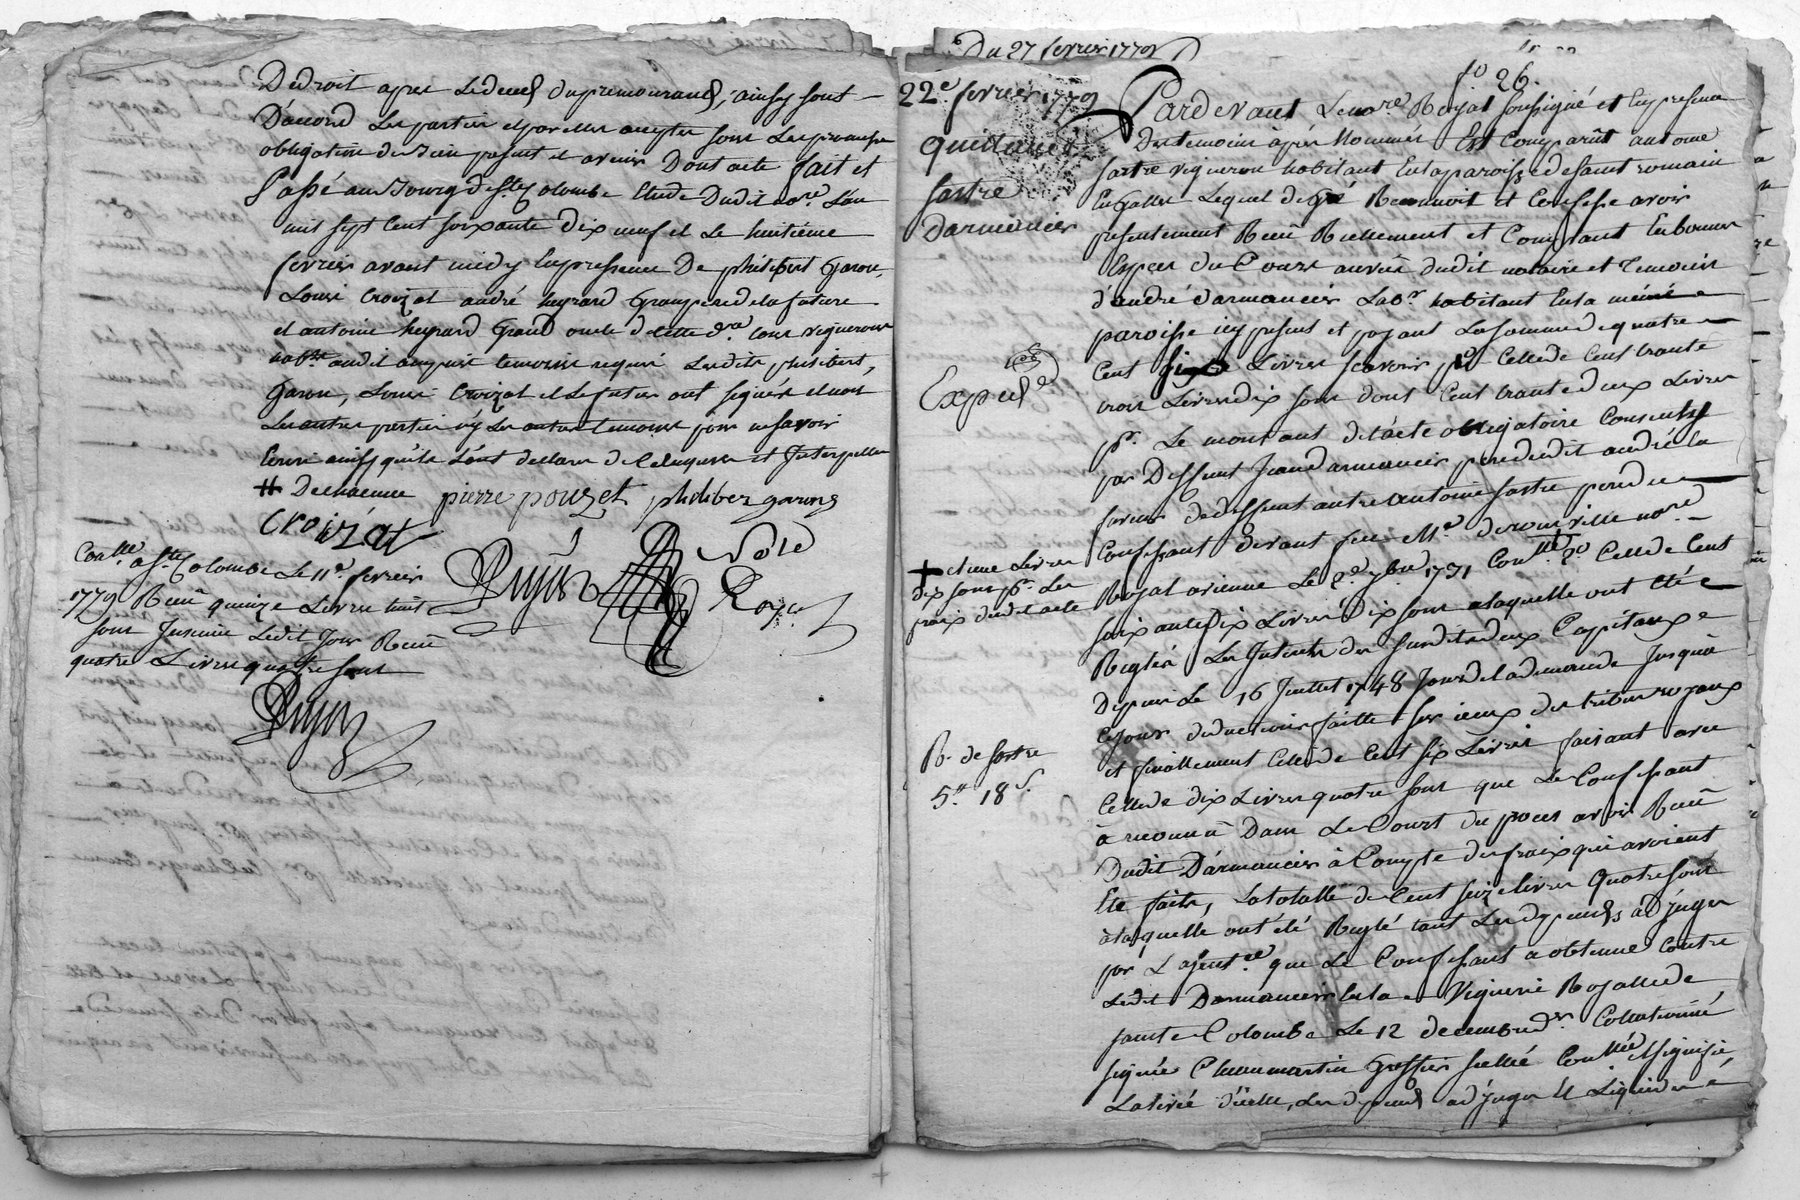 De droit apres Le deces du premourant, ainsy sont
D'accord Les parties
obligation de biens presents et avenir Dont acte fait et
Passé au Bourg de Ste Colombe Etude Dudit nore L'an
mil sept Cent soixante Dix neuf et Le huitieme
fevrier avant midy En presence De philibert Garon,
Louis Croizat andré heyrard Grand pere de la future
et antoine heyrard Grand oncle de cette dre tous vignerons
habts audit ampuis temoins requis Lesdits philibert,
Garon, Louis Croizat et Le futur ont signés et non
Les autres parties ny Les autres temoins pour ne savoir
Ecrire ainsy qu'ils L'ont declaré de Ce Enquis et Interpellés
pierre pouzet philiber garong
Croizat
Dujon
Note
Royal
Conllé a Ste Colombe Le 11e fevrier
1779 Reçu quinze Livres huit
sous Insinué Ledit Jour Reçu
quatre Livres quatre sous
Dujon
Du 27 fevrier 1779
fo 26.
22e fevrier 1779
quittance
sartre
Darmancier
Expedé
Pardevant Le nore Royal soussigné et En presence
Des temoins après Nommés Est Comparût antoine
sartre vigneron habitant En la paroisse de saint romain
En Galles Lequel de gré Reconnoit et Confesse avoir
presentement Reçu Reellement et Comptant En bonnes
Especes du Cours au vû dudit notaire et Temoins
d'andré darmancier Labr habitant En la même
paroisse icy present et payant La somme de quatre
Cent Livres scavoir pr Celle de Cent trante
trois Livres dix sous dont Cent trante deux Livres
pr Le montant de l'acte obligatoire Consenty
par Deffunt Jean darmancier pere dudit andré En
faveur de deffunt autre antoine sartre pere du
Confessant devant feu Me nore
+ et une Livre
dix sous pr Les
fraix dudit acte
Royal a vienne Le 2e 7bre 1731 Conllé Celle de Cent
soixante dix Livres dix sous a laquelle ont Eté
Reglés Les Interets des susdits deux Capitaux
depuis Le 16 Juillet 1748 Jour de la demande Jusqu'à
ce jour deduction faitte sur iceux des tribus royaux
et finallement Celle de Cent six Livres faisant avec
Celle de dix Livres quatre sous que Le Confessant
à reconnu Dans Le Court du proces avoir Reçu
Dudit Darmancier à Compte des fraix qui avoient
Eté faits, La totalle de Cent seize Livres Quatre sous
à laquelle ont été Reglé tant Les depends adjugés
par La sentce que Le Confessant a obtenue Contre
Ledit Darmancier En la Viguerie Royalle de
sainte Colombe Le 12 decembre der Collationné
signée Chaumartin Greffier scellé Conllée et signifié,
La levée d'icelle, Les depends adjugés Et Liquidés
R. de sartre
5.tt 18 s.